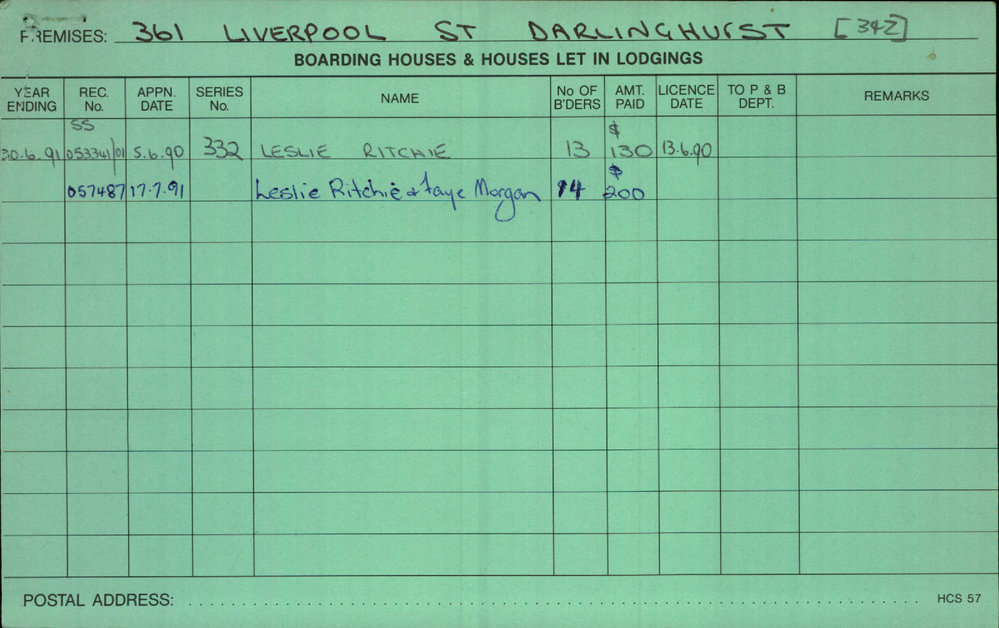 PREMISES: 361 LIVERPOOL ST DARLINGHURST [342]
BOARDING HOUSES & HOUSES LET IN LODGINGS
YEAR ENDING REC. No. APPN. DATE SERIES No. NAME No OF B'DERS AMT. PAID LICENCE DATE TO P & B DEPT. REMARKS
SS $
30.6.91 053341/01 5.6.90 332 LESLIE RITCHIE 13 130 13.6.90
$
057487 17.7.91 Leslie Ritchie & Faye Morgan 14 200
POSTAL ADDRESS: HCS 57